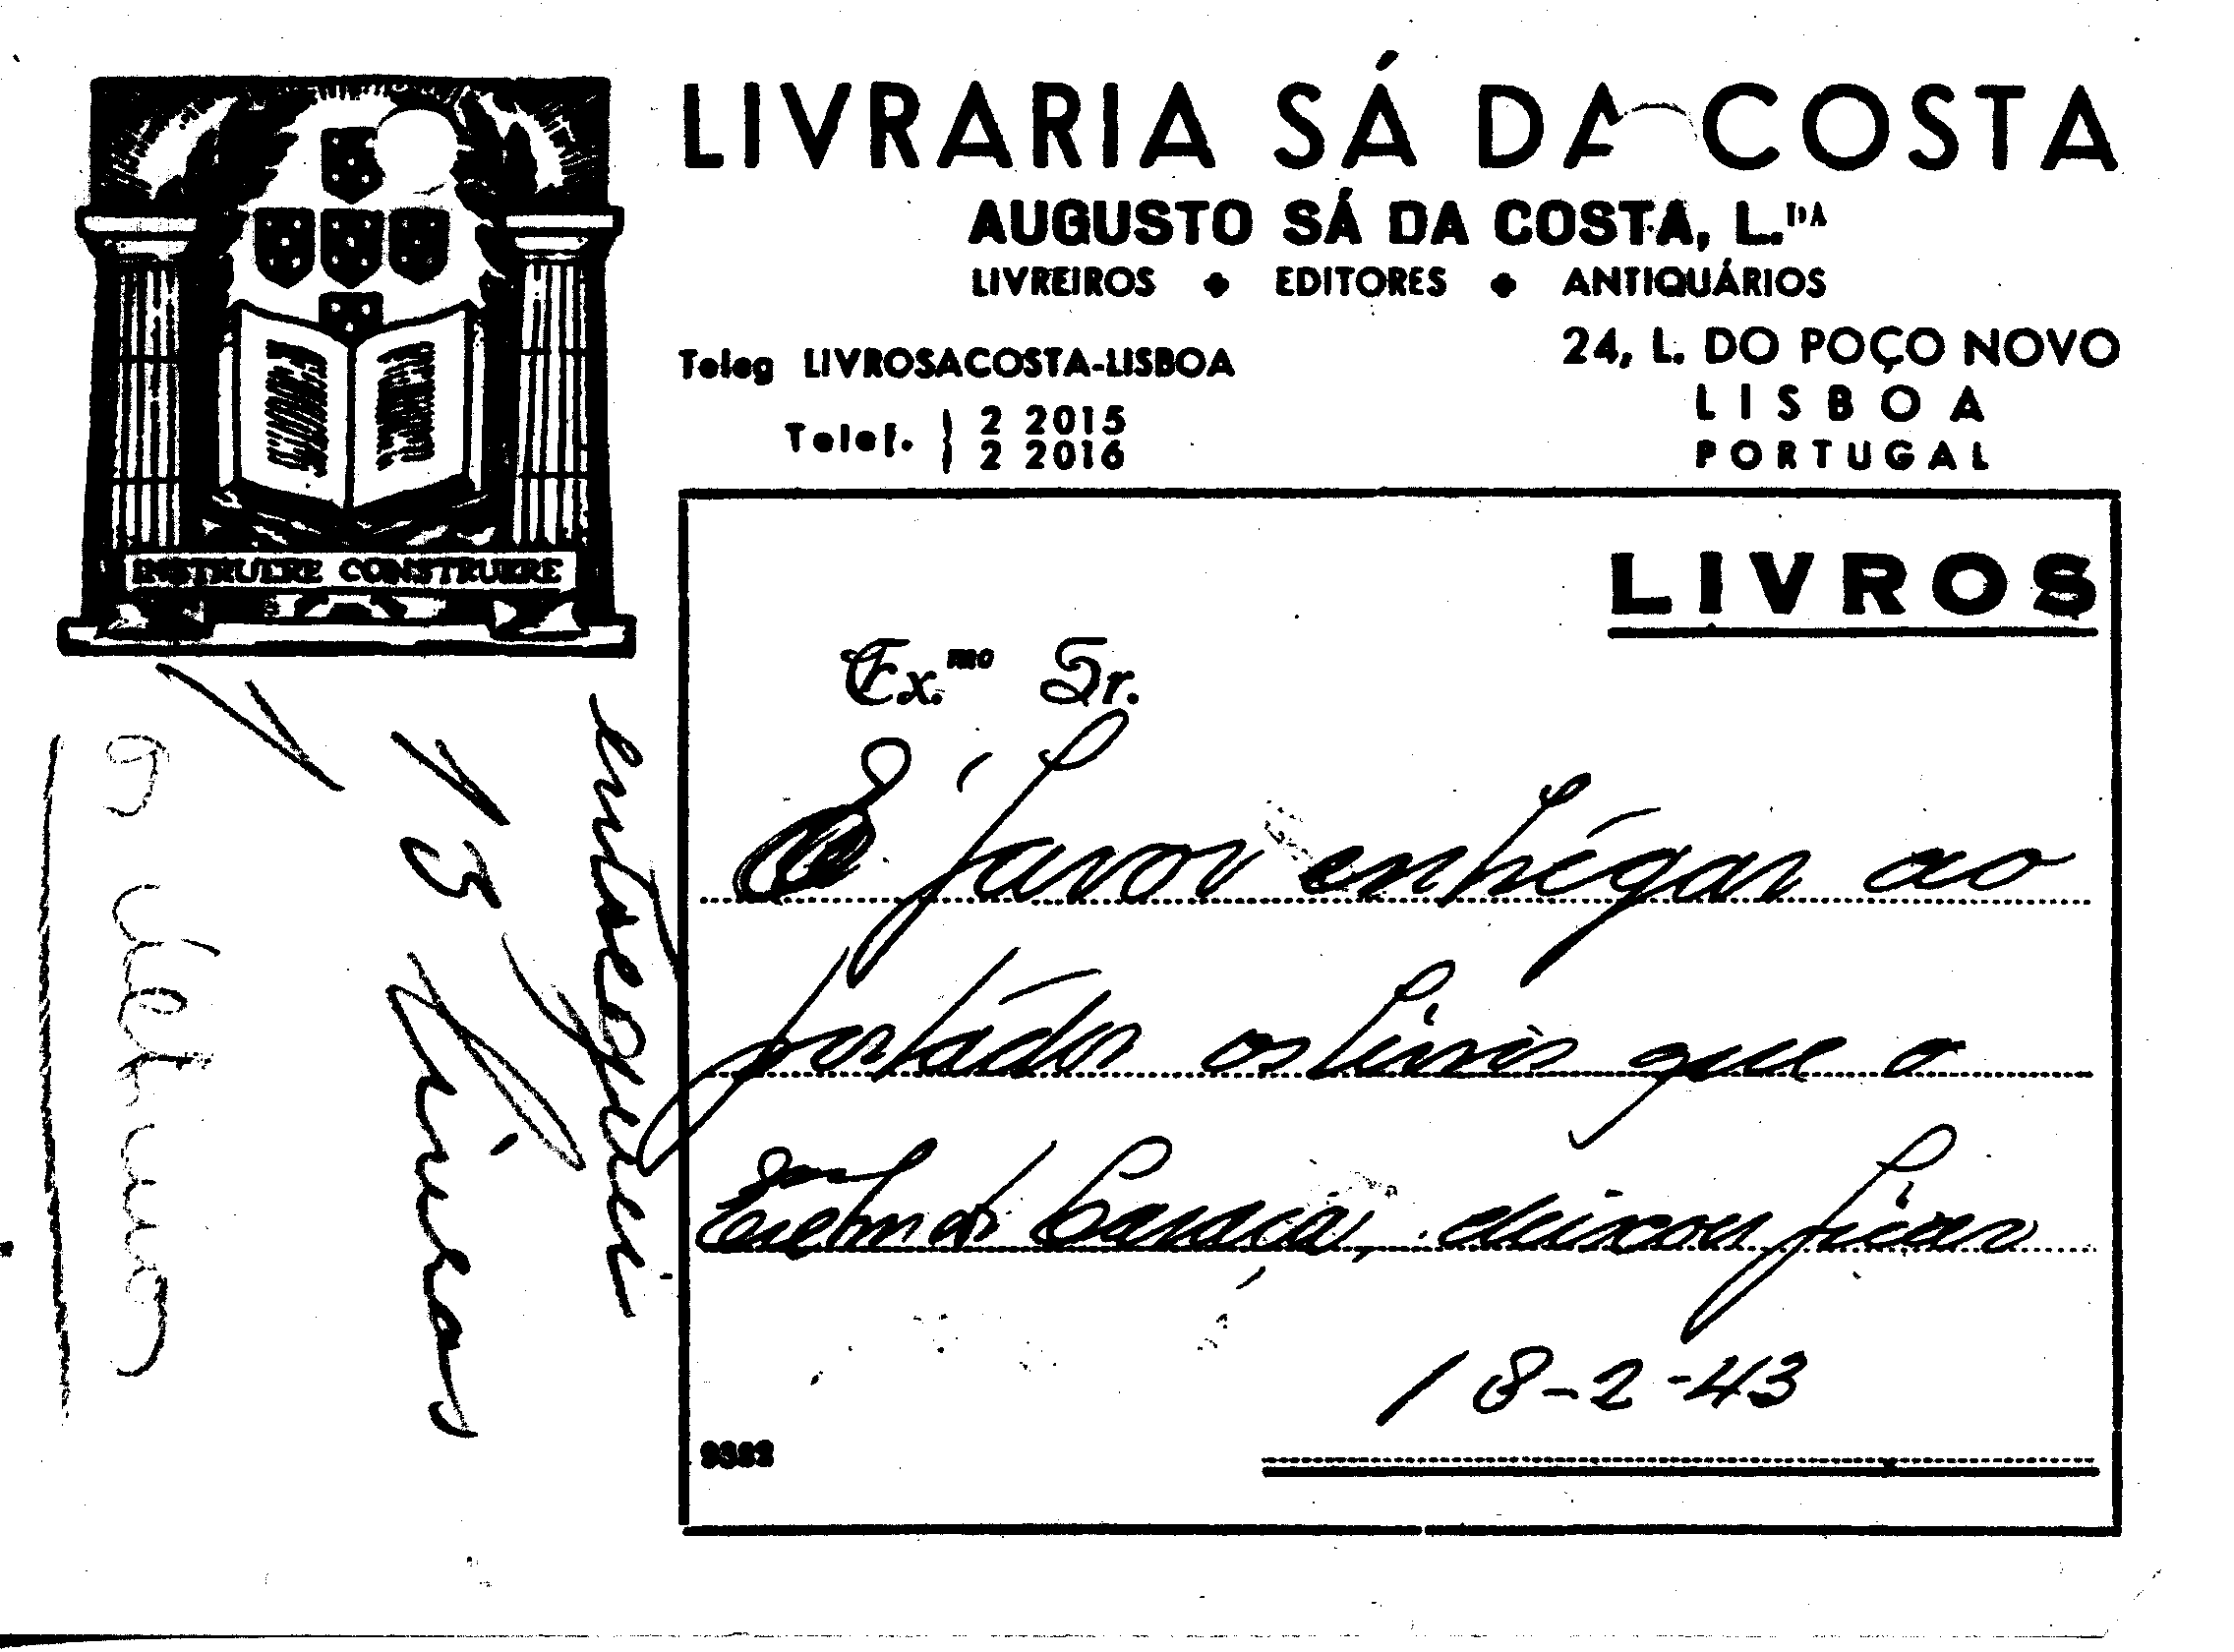 LIVRARIA SÁ DA COSTA
AUGUSTO SÁ DA COSTA, L.DA
LIVREIROS EDITORES ANTIQUÁRIOS
Teleg LIVROSACOSTA-LISBOA
24, L. DO POÇO NOVO
LISBOA
Telef. 2 2015
2 2016
PORTUGAL
INSTRUERE CONSTRUERE
LIVROS
Ex.mo Sr.
favor entregar ao
portador os livros que o
Caraça, deixou ficar
18-2-43
9382
entreguei
13 livros